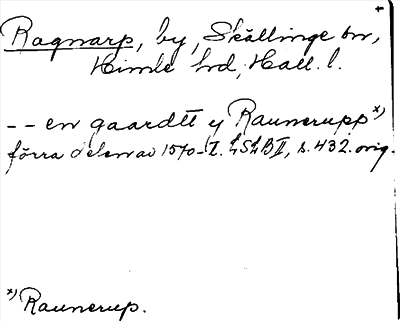 Ragnarp, by, Skällinge sn,
Himle hd, Hall. l.
-- en gaardtt y Raunerupp x)
förra delen av 1570-T. LSLB II, s. 432. orig.
x) Raunerup.